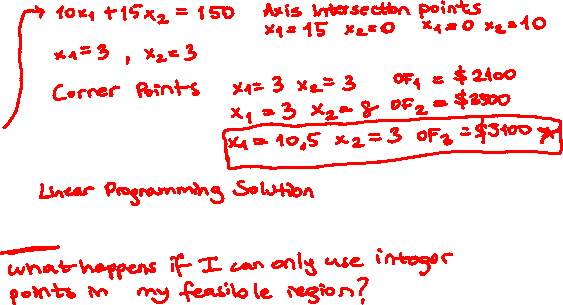 10x₁ + 15x₂ = 150 Axis intersection points
x₁=15 x₂=0 x₁=0 x₂=10
x₁=3 , x₂=3
Corner Points x₁=3 x₂=3 OF₁ = $2100
x₁=3 x₂=8 OF₂ =
x₁=10,5 x₂=3 OF₃ =
Linear Programming Solution
what happens if I can only use integer
points in my feasible region?